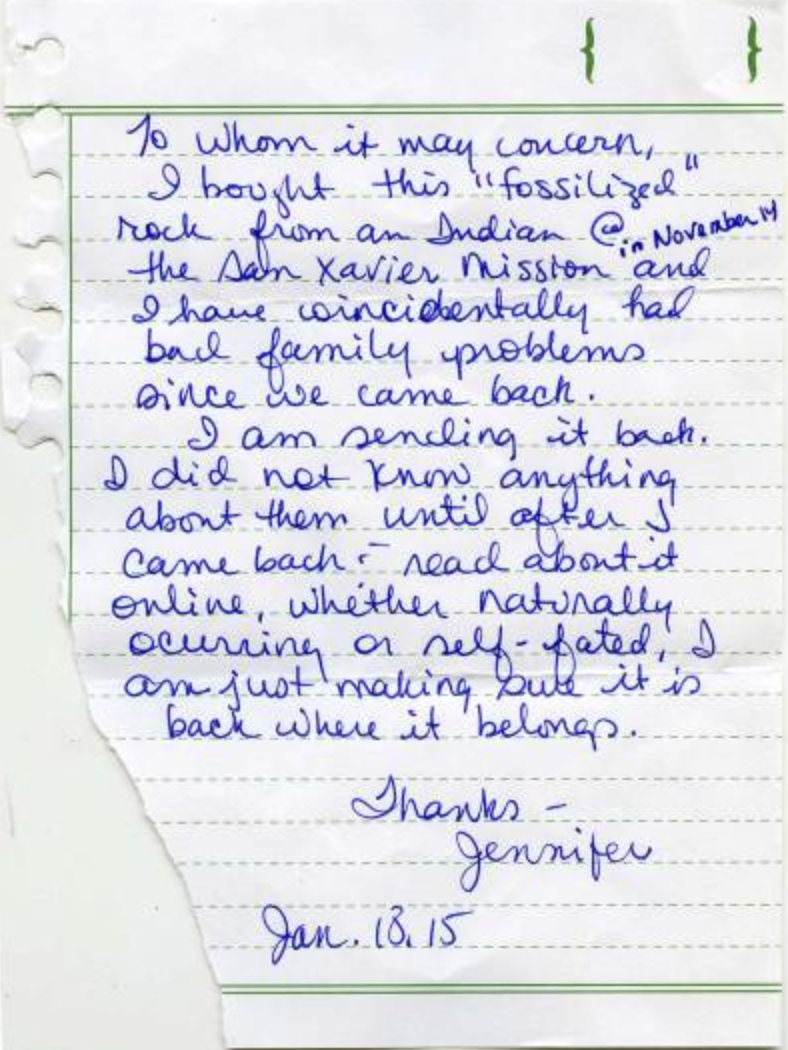 To whom it may concern,
I bought this "fossilized"
rock from an Indian @ in November 14
the San Xavier Mission and
I have coincidentally had
bad family problems
since we came back.
I am sending it back.
I did not know anything
about them until after I
came back - read about it
online, whether naturally
ocurring or self-fated, I
am just making sure it is
back where it belongs.
Thanks -
Jennifer
Jan. 13. 15